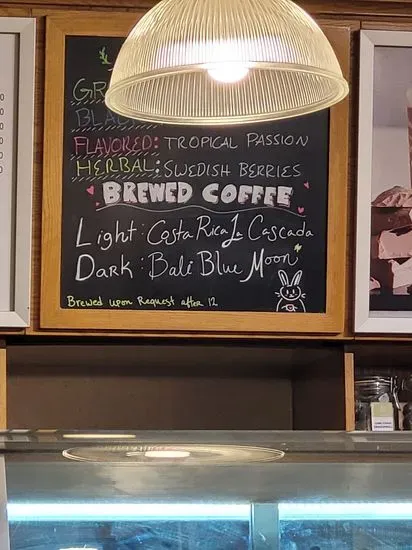 FLAVORED: TROPICAL PASSION
HERBAL: SWEDISH BERRIES
BREWED COFFEE
Light: Costa Rica La Cascada
Dark: Bali Blue Moon
Brewed upon Request after 12